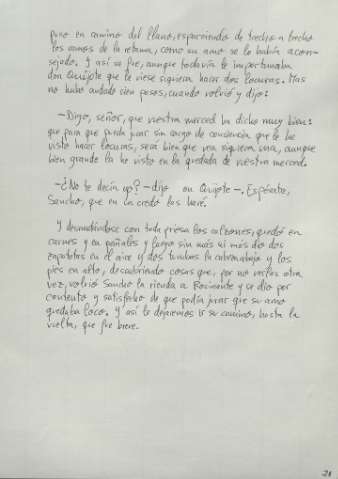 puso en camino del llano, esparciendo de trecho a trecho
los ramos de la retama, como su amo se lo había acon-
sejado. Y así se fue, aunque todavía le importunaba
don Quijote que le viese siquiera hacer dos locuras. Mas
no hubo andado cien pasos, cuando volvió y dijo:
—Digo, señor, que vuestra merced ha dicho muy bien:
que para que pueda jurar sin cargo de conciencia que le he
visto hacer locuras, será bien que vea siquiera una, aunque
bien grande la he visto en la quedada de vuestra merced.
—¿No te decía yo? —dijo don Quijote—. Espérate,
Sancho, que en un credo las haré.
Y desnudándose con toda priesa los calzones, quedó en
carnes y en pañales y luego sin más ni más dio dos
zapatetas en el aire y dos tumbas la cabeza abajo y los
pies en alto, descubriendo cosas que, por no verlas otra
vez, volvió Sancho la rienda a Rocinante y se dio por
contento y satisfecho de que podía jurar que su amo
quedaba loco. Y así le dejaremos ir su camino, hasta la
vuelta, que fue breve.
21